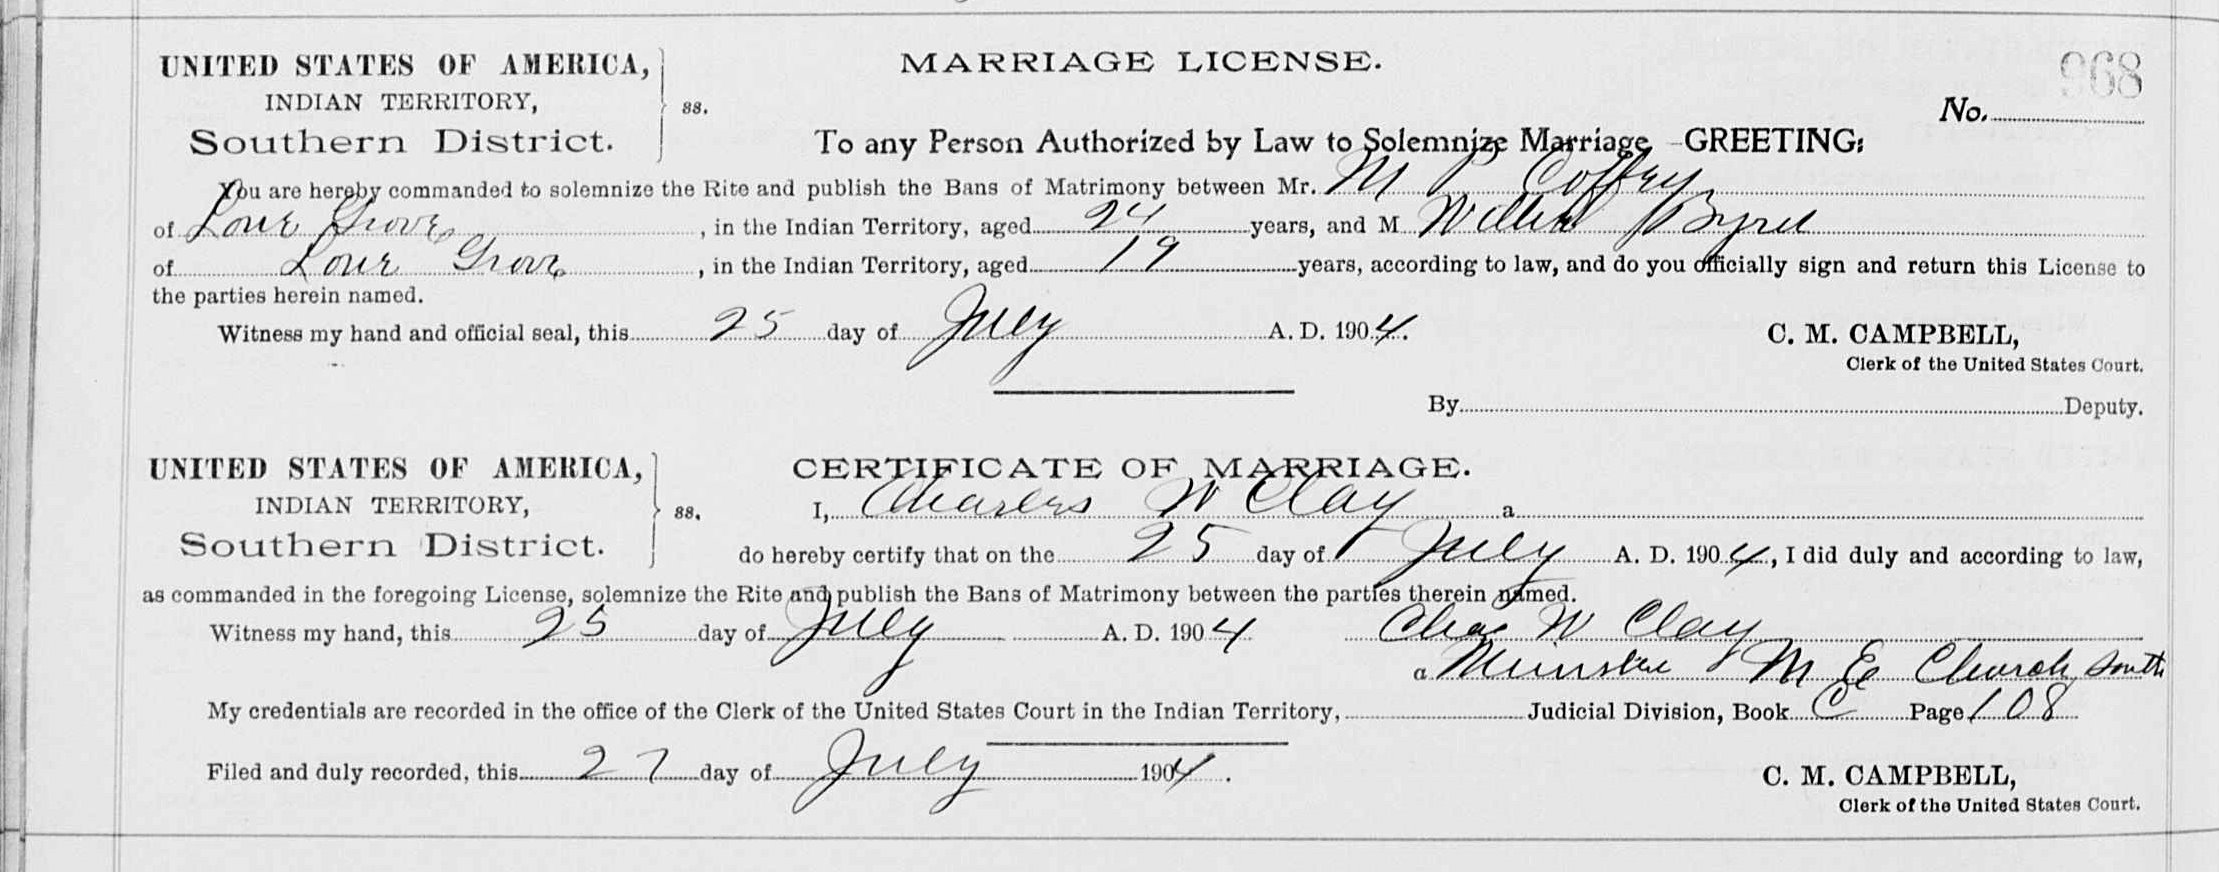 UNITED STATES OF AMERICA,
INDIAN TERRITORY,
Southern District.
ss.
MARRIAGE LICENSE.
968
No.
To any Person Authorized by Law to Solemnize Marriage—GREETING:
You are hereby commanded to solemnize the Rite and publish the Bans of Matrimony between Mr. M P Coffey
of Lone Grove, in the Indian Territory, aged 24 years, and M Byrd
of Lone Grove, in the Indian Territory, aged 19 years, according to law, and do you officially sign and return this License to
the parties herein named.
Witness my hand and official seal, this 25 day of July A. D. 1904.
C. M. CAMPBELL,
Clerk of the United States Court.
By Deputy.
UNITED STATES OF AMERICA,
INDIAN TERRITORY,
Southern District.
ss.
CERTIFICATE OF MARRIAGE.
I, Charles W Clay a
do hereby certify that on the 25 day of July A. D. 1904, I did duly and according to law,
as commanded in the foregoing License, solemnize the Rite and publish the Bans of Matrimony between the parties therein named.
Witness my hand, this 25 day of July A. D. 1904 Chas W Clay
a Minister M E Church South
My credentials are recorded in the office of the Clerk of the United States Court in the Indian Territory, Judicial Division, Book C Page 108
Filed and duly recorded, this 27 day of July 1904.
C. M. CAMPBELL,
Clerk of the United States Court.